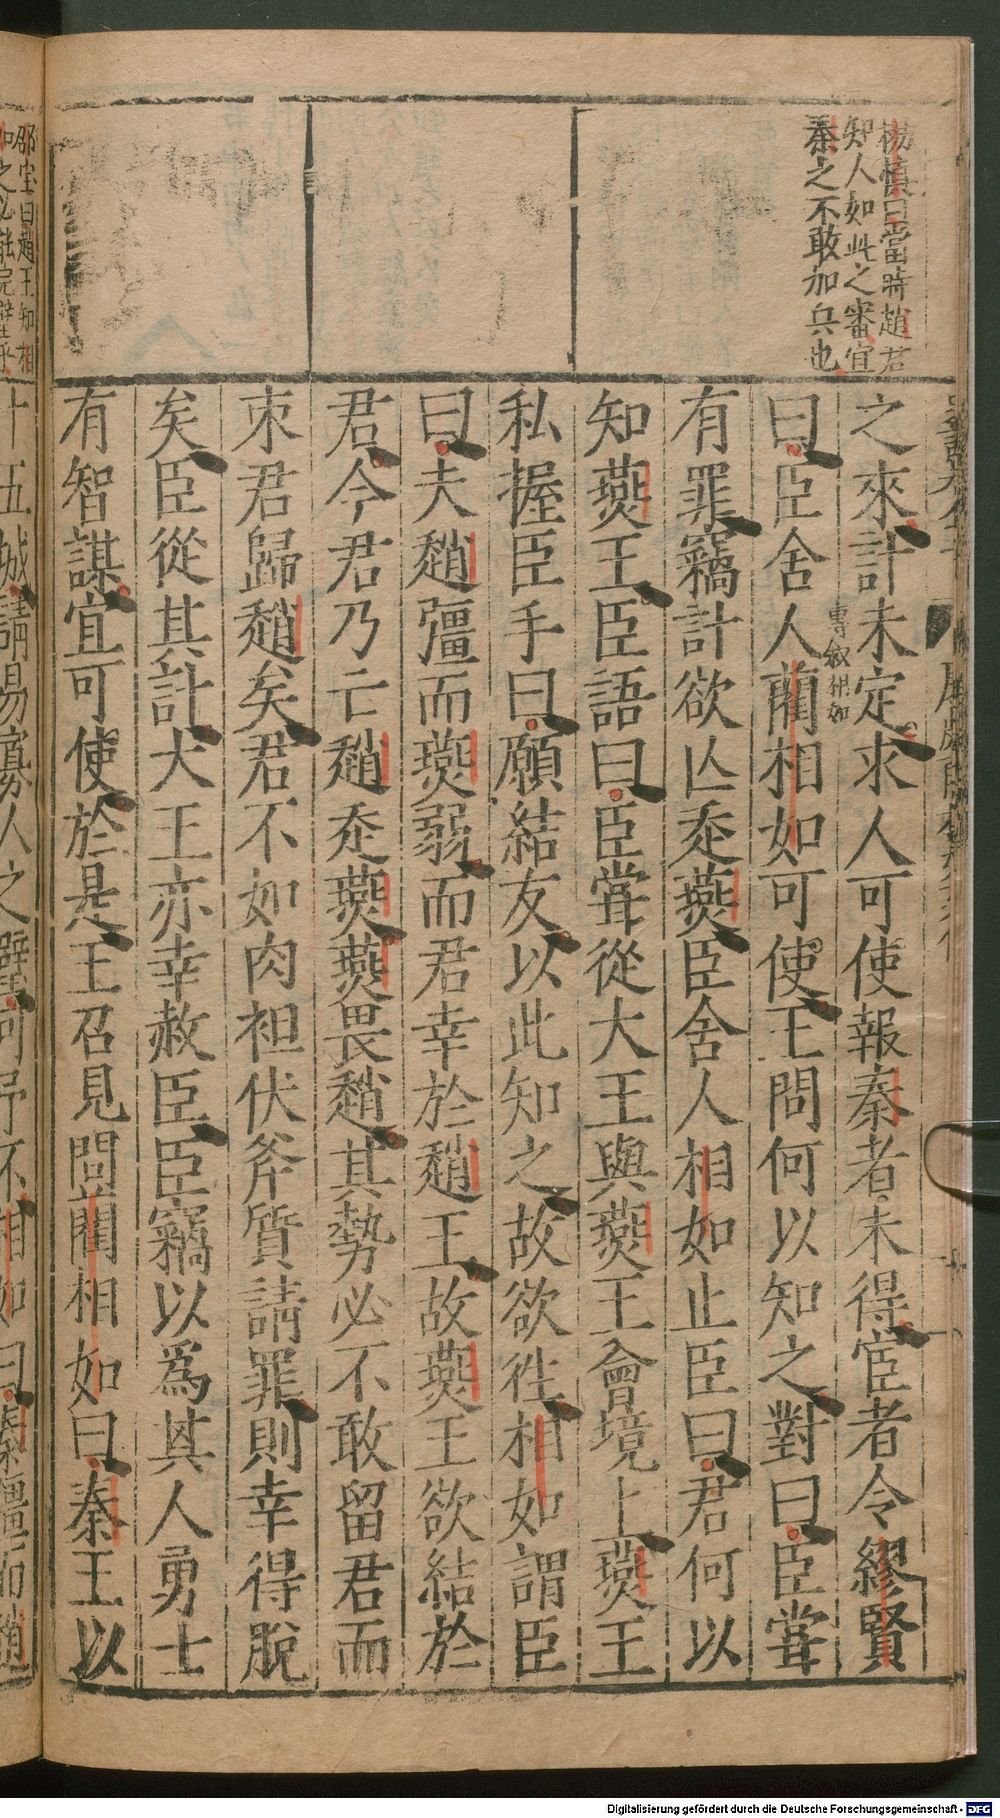 楊慎曰當時趙君
知人如此之審宜
秦之不敢加兵也
之來計未定求人可使報秦者未得宦者令繆賢
曰臣舍人藺相如可使王問何以知之對曰臣甞
專敘相如
有罪竊計欲亾走燕臣舍人相如止臣曰君何以
知燕王臣語曰臣甞從大王與燕王會境上燕王
私握臣手曰願結友以此知之故欲徃相如謂臣
曰夫趙彊而燕弱而君幸於趙王故燕王欲結於
君今君乃亡趙走燕燕畏趙其勢必不敢留君而
束君歸趙矣君不如肉袒伏斧質請罪則幸得脫
矣臣從其計大王亦幸赦臣臣竊以爲其人勇士
有智謀宜可使於是王召見問藺相如曰秦王以
邵宝曰趙王知相
如之必能完璧乎
十五城請易寡人之璧可予不相如曰秦彊而趙
Digitalisierung gefördert durch die Deutsche Forschungsgemeinschaft - DFG